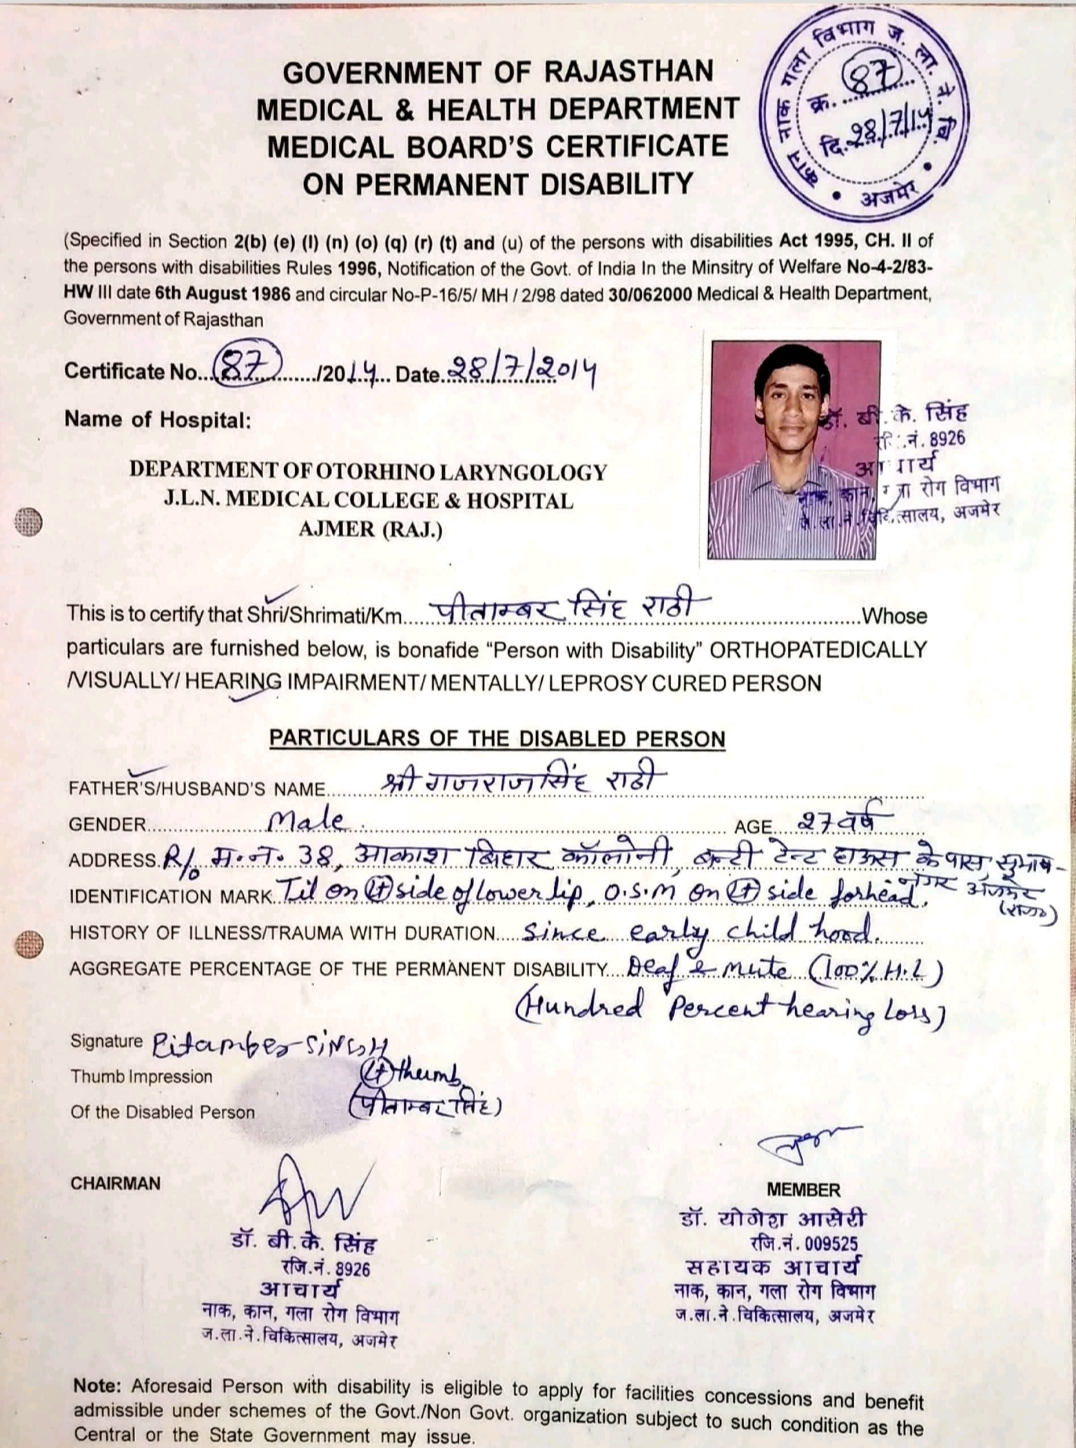 कान नाक गला विभाग ज. ला. ने. चि.
क्र. 87
दि. 28/7/14
अजमेर
GOVERNMENT OF RAJASTHAN
MEDICAL & HEALTH DEPARTMENT
MEDICAL BOARD'S CERTIFICATE
ON PERMANENT DISABILITY
(Specified in Section 2(b) (e) (l) (n) (o) (q) (r) (t) and (u) of the persons with disabilities Act 1995, CH. II of
the persons with disabilities Rules 1996, Notification of the Govt. of India In the Minsitry of Welfare No-4-2/83-
HW III date 6th August 1986 and circular No-P-16/5/ MH / 2/98 dated 30/062000 Medical & Health Department,
Government of Rajasthan
Certificate No...87.../2014... Date 28/7/2014
Name of Hospital:
DEPARTMENT OF OTORHINO LARYNGOLOGY
J.L.N. MEDICAL COLLEGE & HOSPITAL
AJMER (RAJ.)
डॉ. बी.के. सिंह
रजि.नं. 8926
आचार्य
नाक, कान, गला रोग विभाग
ज.ला.ने.चिकित्सालय, अजमेर
This is to certify that Shri/Shrimati/Km....पीताम्बर सिंह राठी....Whose
particulars are furnished below, is bonafide "Person with Disability" ORTHOPATEDICALLY
/VISUALLY/ HEARING IMPAIRMENT/ MENTALLY/ LEPROSY CURED PERSON
PARTICULARS OF THE DISABLED PERSON
FATHER'S/HUSBAND'S NAME....श्री गजराजसिंह राठी
GENDER....Male.... AGE 27 वर्ष
ADDRESS. R/o म.न. 38, आकाश बिहार कॉलोनी, बन्टी टेन्ट हाऊस के पास, सुभाष-
नगर अजमेर
(राज॰)
IDENTIFICATION MARK. Til on Lt side of lower lip, O.S.M on Lt side forhead.
HISTORY OF ILLNESS/TRAUMA WITH DURATION....Since early child hood.
AGGREGATE PERCENTAGE OF THE PERMANENT DISABILITY...Deaf & Mute (100% H.L)
(Hundred Percent hearing Loss)
Signature Pitamber SiNGH
Thumb Impression Lt thumb
Of the Disabled Person (पीताम्बर सिंह)
CHAIRMAN
डॉ. बी.के. सिंह
रजि.नं. 8926
आचार्य
नाक, कान, गला रोग विभाग
ज.ला.ने.चिकित्सालय, अजमेर
MEMBER
डॉ. योगेश आसेरी
रजि.नं. 009525
सहायक आचार्य
नाक, कान, गला रोग विभाग
ज.ला.ने.चिकित्सालय, अजमेर
Note: Aforesaid Person with disability is eligible to apply for facilities concessions and benefit
admissible under schemes of the Govt./Non Govt. organization subject to such condition as the
Central or the State Government may issue.